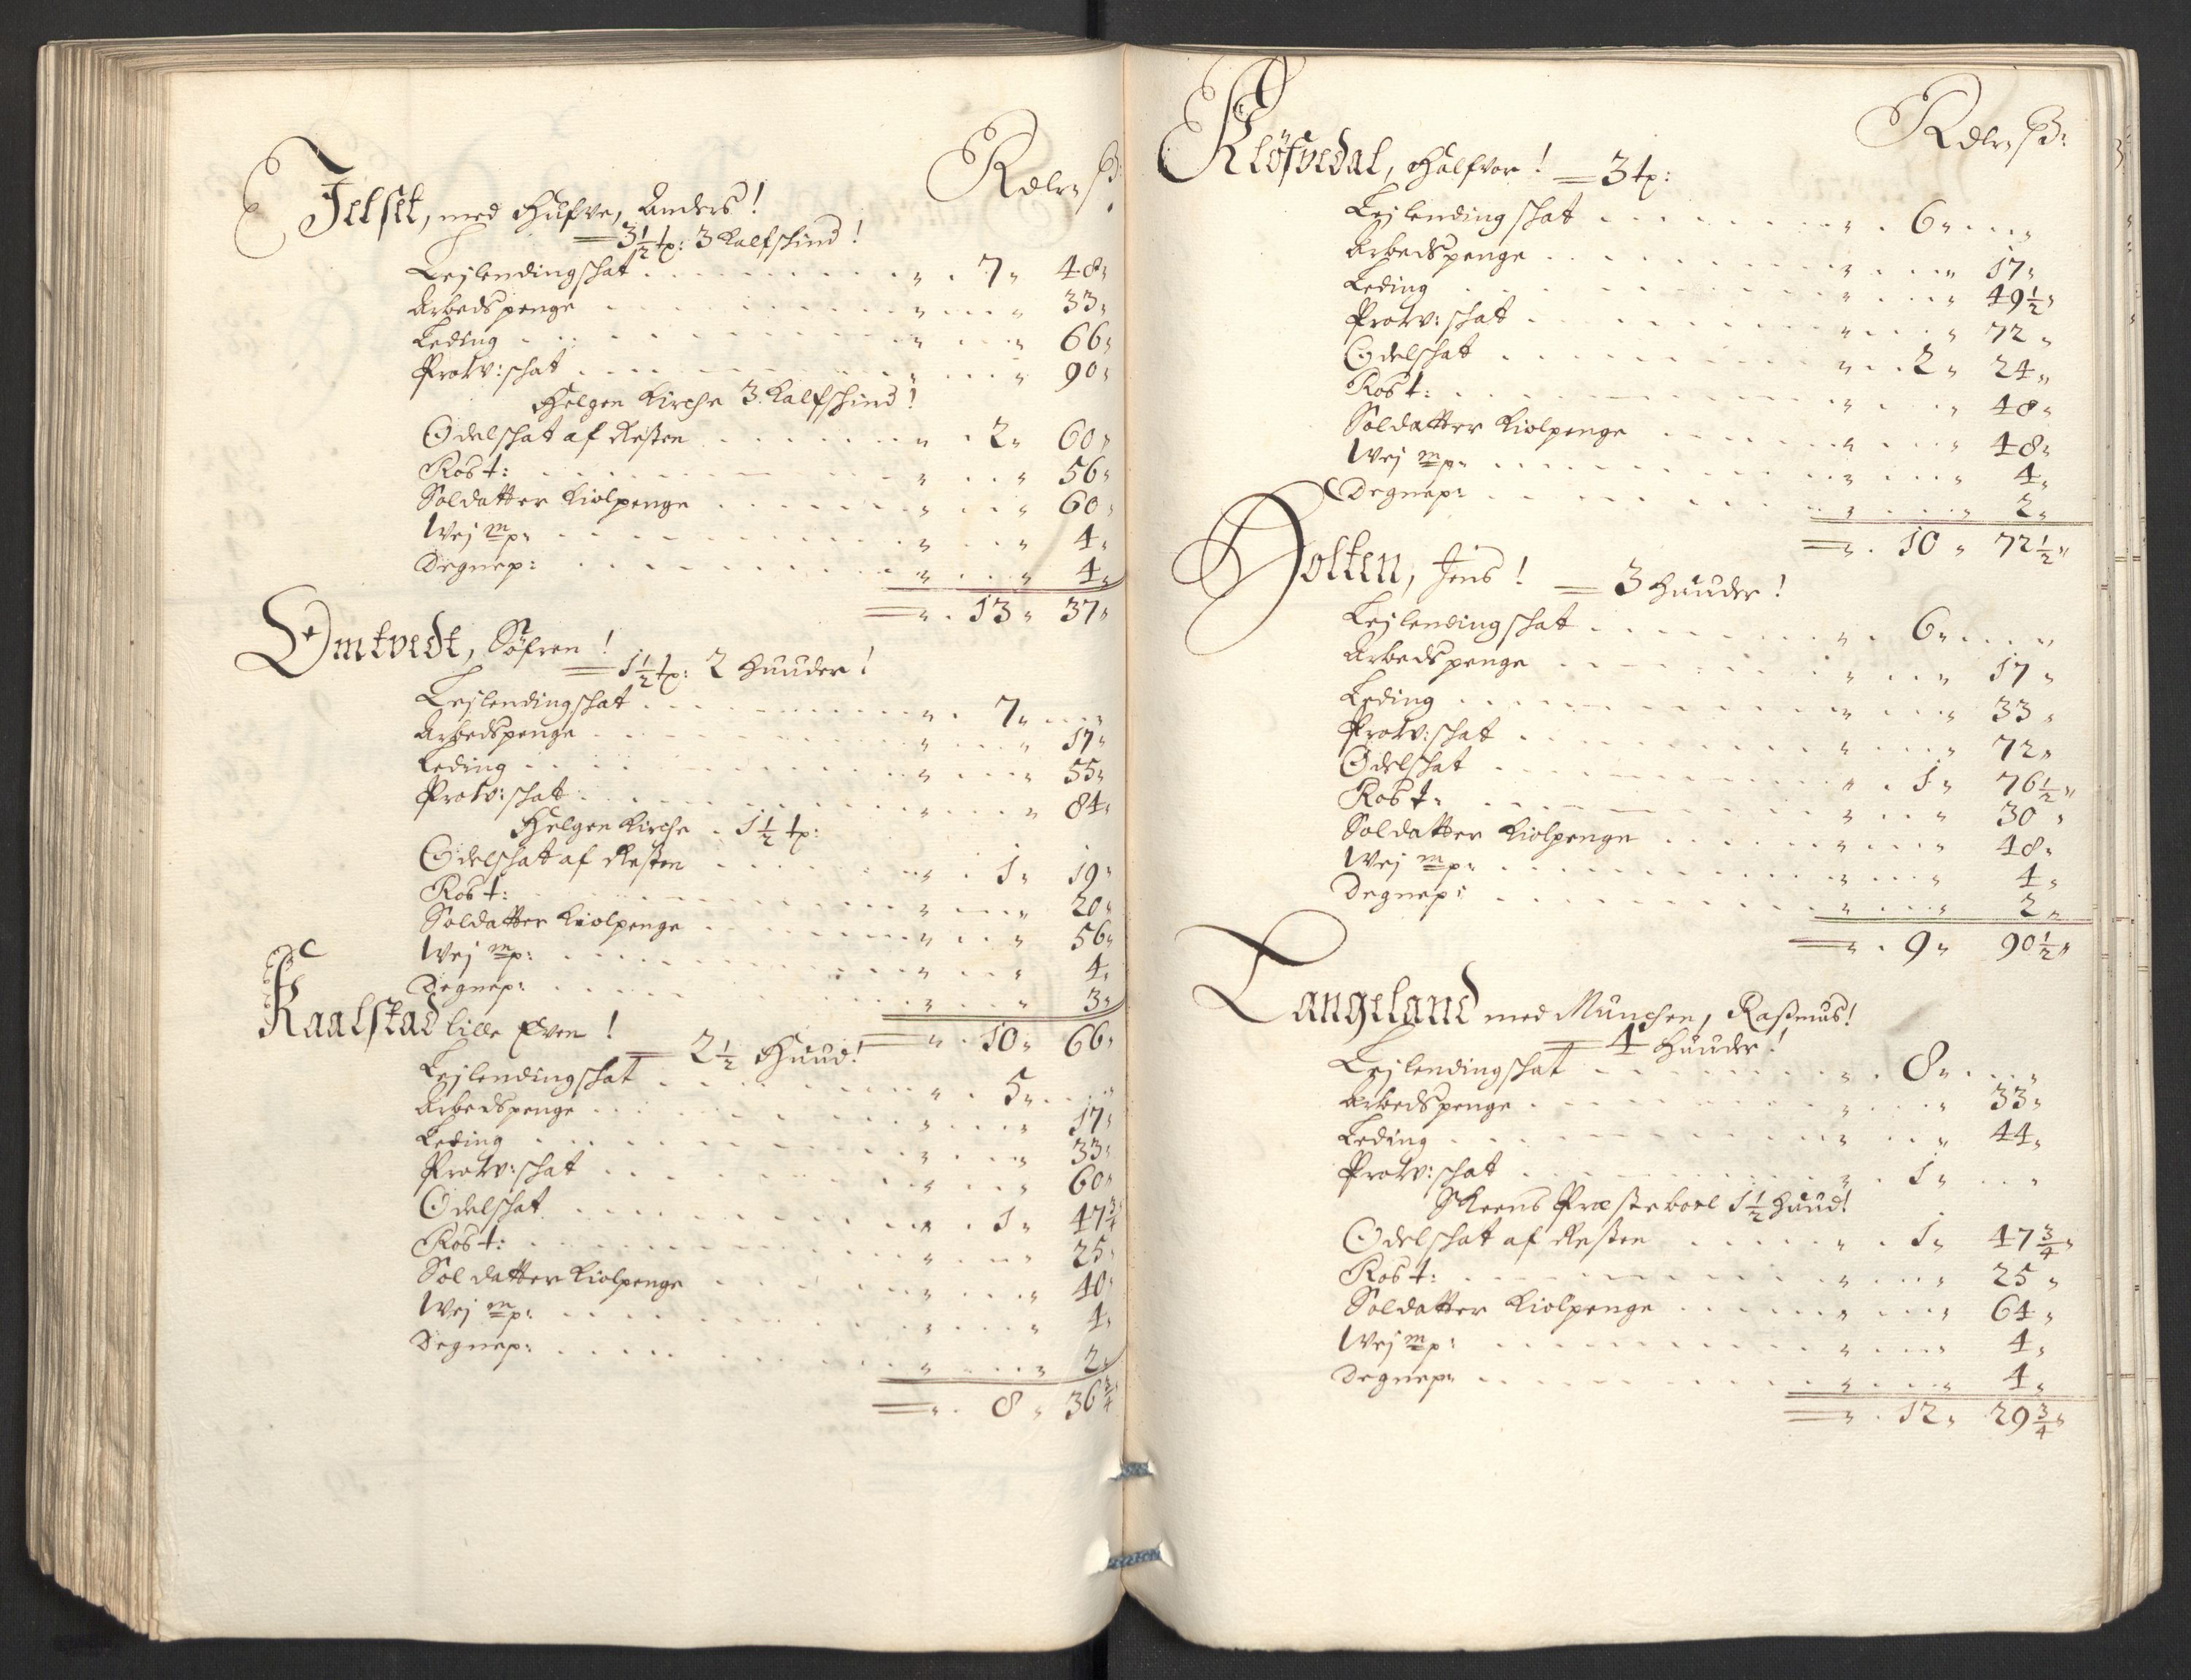 Rdlr ß:
Jelset, med Hufve, Anders!
= 3½ tp: 3 Kalfschind!
Lejlendingschat . . . 7 " 48 "
Arbedspenge . . . " 33 "
Leding . . . " 66 "
Prow: schat . . . " 90 "
Helgen Kirche 3. Kalfschind!
Odelschat af Resten . . . 2 " 60 "
Ros t: . . . " 56 "
Soldatter Kiolpenge . . . " 60 "
Wej mp: . . . " 4 "
Degnep: . . . " 4 "
= " 13 " 37 "
Omtvedt, Söfren!
= 1½ tp: 2 Huuder!
Lejlendingschat . . . 7 " . . . "
Arbedspenge . . . " 17 "
Leding . . . " 55 "
Prow: schat . . . " 84 "
Helgen Kirche . 1½ tp:
Odelschat af Resten . . . 1 " 19 "
Ros t: . . . " 20 "
Soldatter Kiolpenge . . . " 56 "
Wej mp: . . . " 4 "
Degnep: . . . " 3 "
= " 10 " 66 "
Kaalstad lille Even!
= 2½ Huud!
Lejlendingschat . . . 5 " . . . "
Arbedspenge . . . " 17 "
Leding . . . " 33 "
Prow: schat . . . " 60 "
Odelschat . . . 1 " 47¾
Ros t: . . . " 25 "
Soldatter Kiolpenge . . . " 40 "
Wej mp: . . . " 4 "
Degnep: . . . " 2 "
= " 8 " 36¾
Rdlr ß:
Klöfvedal, Halfvor! = 3 tp:
Lejlendingschat . . . 6 " . . . "
Arbedspenge . . . " 17 "
Leding . . . " 49½ "
Prow: schat . . . " 72 "
Odelschat . . . 2 " 24 "
Ros t: . . . " 48 "
Soldatter Kiolpenge . . . " 48 "
Wej mp: . . . " 4 "
Degnep: . . . " 2 "
= " 10 " 72½ "
Holten, Jens! = 3 Huuder!
Lejlendingschat . . . 6 " . . . "
Arbedspenge . . . " 17 "
Leding . . . " 33 "
Prow: schat . . . " 72 "
Odelschat . . . 1 " 76½ "
Ros t: . . . " 30 "
Soldatter Kiolpenge . . . " 48 "
Wej mp: . . . " 4 "
Degnep: . . . " 2 "
= " 9 " 90½ "
Langeland med Munchen, Rasmus!
= 4 Huuder!
Lejlendingschat . . . 8 " . . . "
Arbedspenge . . . " 33 "
Leding . . . " 44 "
Prow: schat . . . 1 " . . . "
Skeens Præsteboel 1½ Huud!
Odelschat af Resten . . . 1 " 47¾ "
Ros t: . . . " 25 "
Soldatter Kiolpenge . . . " 64 "
Wej mp: . . . " 4 "
Degnep: . . . " 4 "
= " 12 " 29¾ "